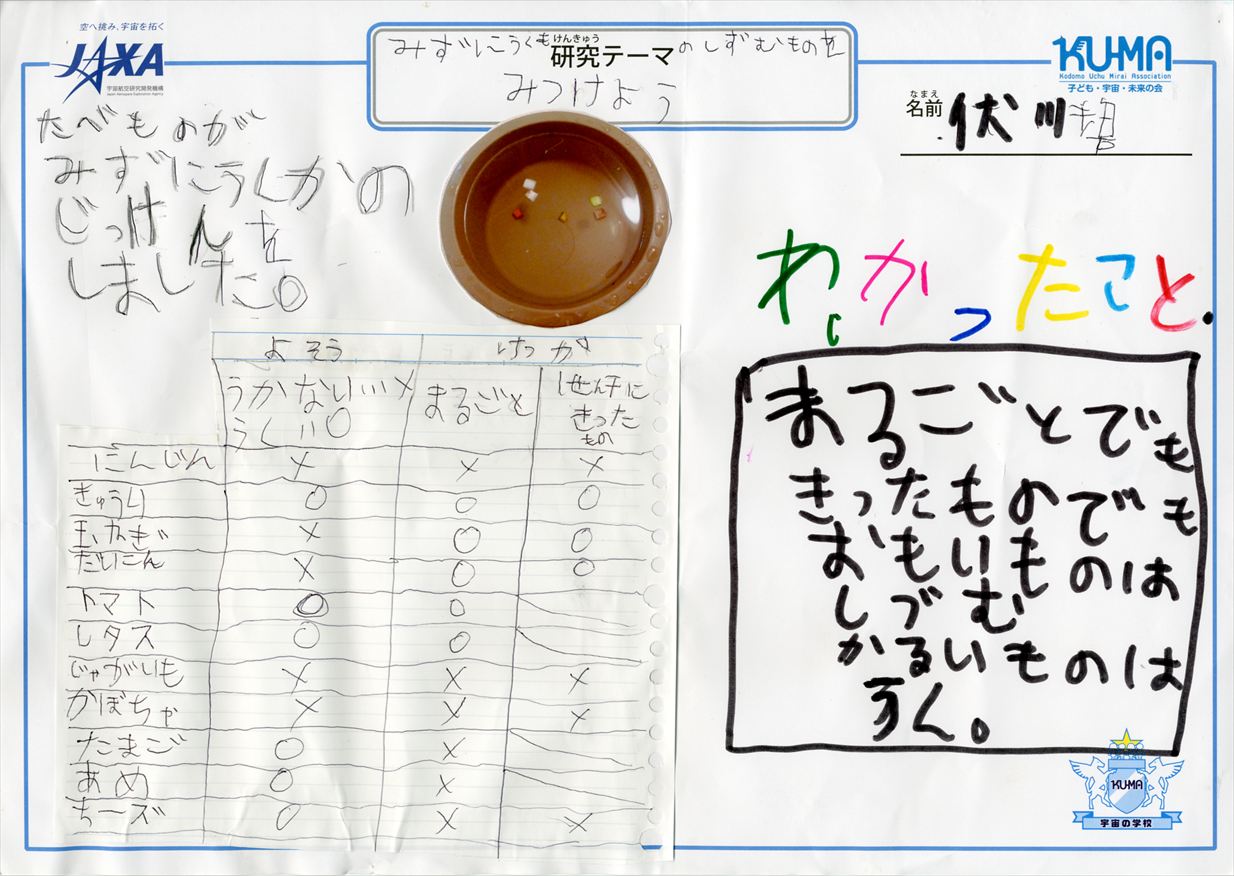 空へ挑み、宇宙を拓く
JAXA
宇宙航空研究開発機構
Japan Aerospace Exploration Agency
けんきゅう
研究テーマ
みずにうくものしずむものを
みつけよう
KU-MA
Kodomo Uchu Mirai Association
子ども・宇宙・未来の会
なまえ
名前 伏川
たべものが
みずにうくかの
じっけんを
しました。
わかったこと.
よそう けっか
うかない…×
うく…○ まるごと 1せんチに
きった
もの
にんじん × × ×
きゅうり ○ ○ ○
玉ねぎ × ○ ○
だいこん × ○ ○
トマト ○ ○
レタス ○ ○
じゃがいも × × ×
かぼちゃ × × ×
たまご ○ ×
あめ ○ ×
チーズ ○ × ×
まるごとでも
きったものでも
おもいものは
しづむ
かるいものは
うく。
KUMA
宇宙の学校